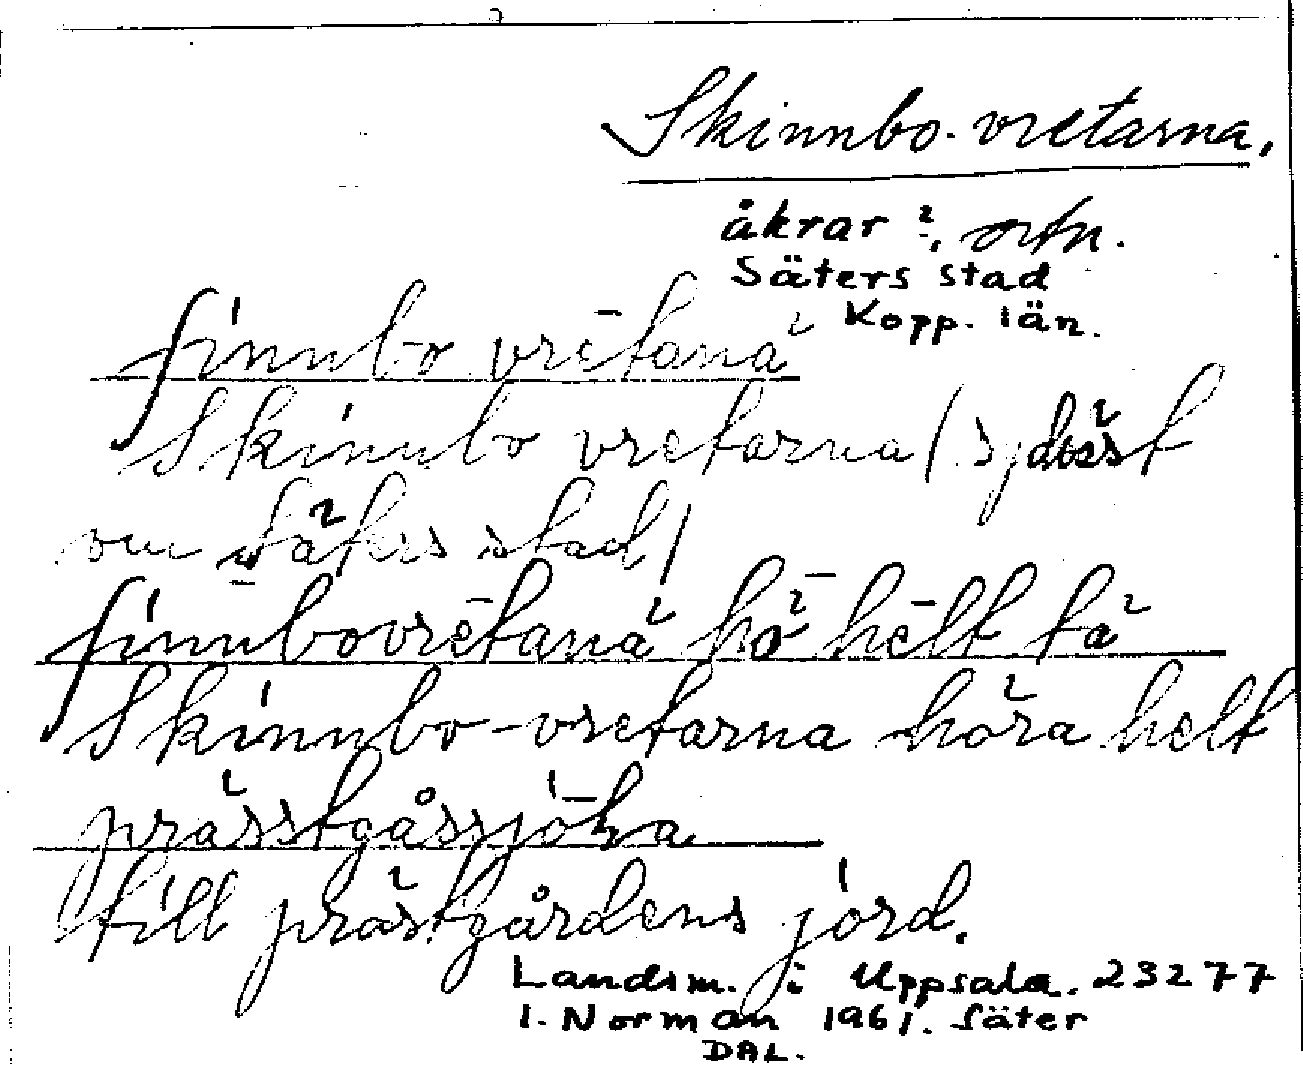 Skinnbo-vretarna.
åkrar?, ortn.
Säters stad
Kopp. län.
ʃinnbo vrētana
Skinnbo vretarna (sydöst
om Säters stad)
ʃinnbovrētana hö hēlt tä
Skinnbo-vretarna höra helt
prässtgåssjōka
till prästgårdens jord.
Landsm. i Uppsala. 23277
I. Norman 1961. Säter
DAL.